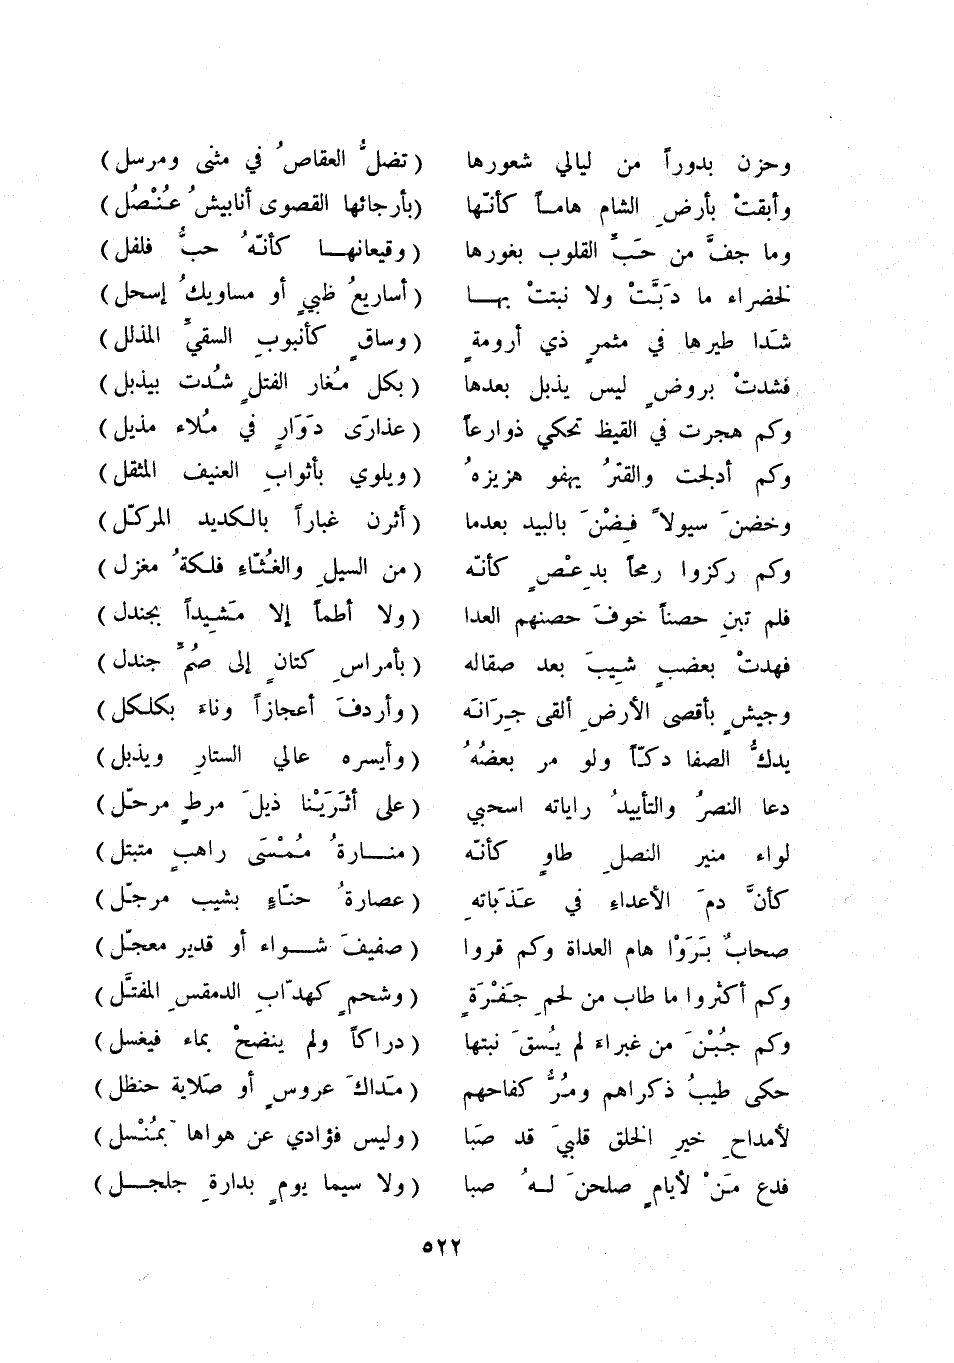 وحزن بدوراً من ليالي شعورها (تضلُّ العقاصُ في مثنى ومرسل)
وأبقتْ بأرضِ الشام هامـاً كأنّها (بأرجائها القصوى أنابيشُ عُنْصُل)
وما جفَّ من حَبِّ القلوب بغورها (وقيعانهـا كأنّهُ حبُّ فلفل)
لخضراء ما دَبَّتْ ولا نبتتْ بهـا (أساريعُ ظبيٍ أو مساويكُ إسحل)
شدَا طيرها في مثمرٍ ذي أرومةٍ (وساقٍ كأنبوبِ السقيِّ المذلل)
فشدتْ بروضٍ ليس يذبل بعدها (بكل مُغار الفتلِ شُدت بيذبل)
وكم هجرت في القيظ تحكي ذوارعاً (عذارَى دَوَارٍ في مُلاء مذيل)
وكم أدلجت والقترُ يهفو هزيزهُ (ويلوي بأثوابِ العنيف المثقل)
وخضنَ سيولاً فِضْنَ بالبيد بعدما (أثرن غباراً بالكديد المركّل)
وكم ركزوا رمحاً بدِعْصٍ كأنّه (من السيلِ والغُثّاءِ فلكةُ مغزل)
فلم تبنِ حصناً خوفَ حصنهم العدا (ولا أطماً إلا مَشِيداً بجندل)
فهدتْ بعضبٍ شِيبَ بعد صقاله (بأمراسِ كتانٍ إلى صُمِّ جندل)
وجيشٍ بأقصى الأرضِ ألقى جِرَانَه (وأردفَ أعجازاً وناءَ بكلكل)
يدكُّ الصفا دكّاً ولو مر بعضُهُ (وأيسره عالي الستارِ ويذبل)
دعا النصرُ والتأييدُ راياته اسحبي (على أثَرَيْنا ذيلَ مرطٍ مرحّل)
لواء منير النصلِ طاوٍ كأنّه (منـارةُ مُمْسَى راهبٍ متبتل)
كأنَّ دمَ الأعداءِ في عَذَباتهِ (عصارةُ حنّاءٍ بشيب مرجّل)
صحابٌ بَرَوْا هام العداة وكم قروا (صفيفَ شـواء أو قدير معجّل)
وكم أكثروا ما طاب من لحمِ جَفْرَةٍ (وشحمٍ كهدّابِ الدمقسِ المفتَّل)
وكم جُبْنَ من غبراءَ لم يُسقَ نبتها (دراكاً ولم ينضحْ بماء فيغسل)
حكى طيبُ ذكراهم ومُرُّ كفاحهم (مَداكَ عروسٍ أو صَلاية حنظل)
لأمداحِ خيرِ الخلق قلبيَ قد صَبَا (وليس فؤادي عن هواها بمُنْسل)
فدع مَنْ لأيامٍ صلحنَ لـهُ صبا (ولا سيما يومٍ بدارةِ جلجـل)
٥٢٢